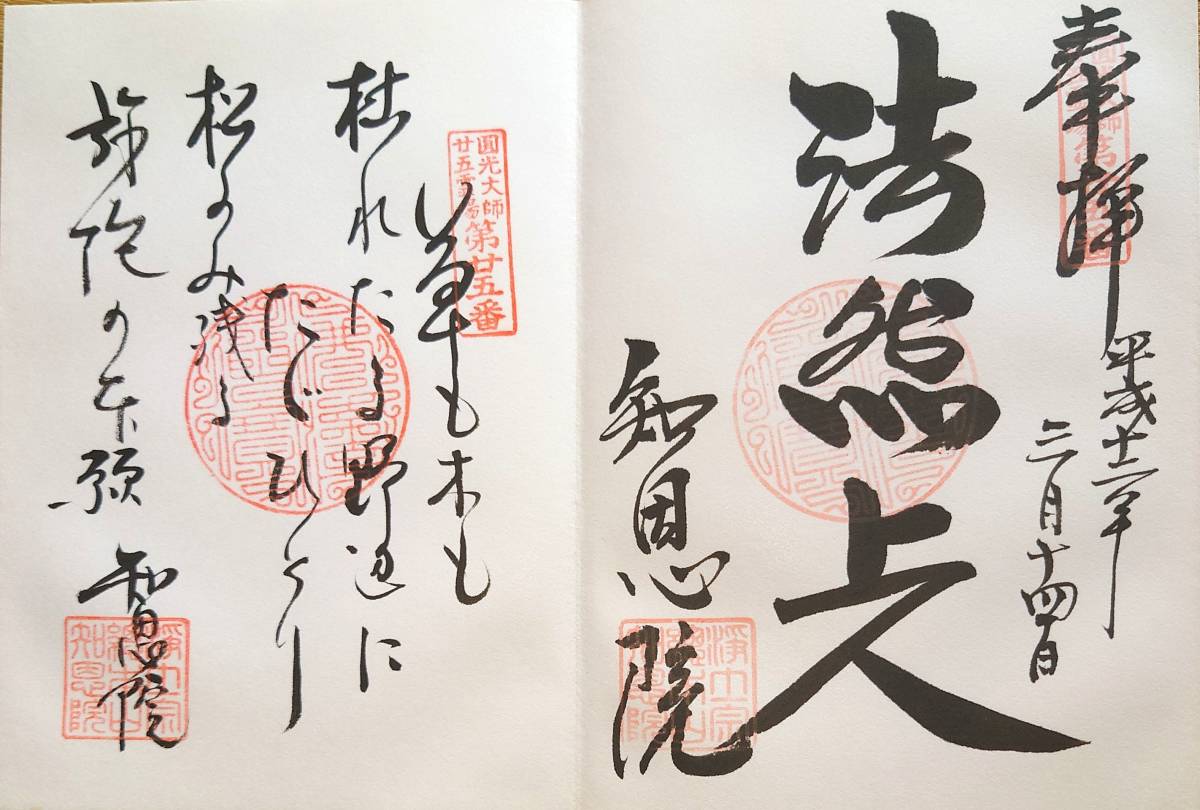 奉拝
平成十二年
三月十四日
法然上人
知恩院
圓光大師
廿五霊場
第廿五番
草も木も
枯れたる野辺に
たゞひとり
松のみ残る
弥陀の本願
知恩院
浄土宗
總本山
知恩院